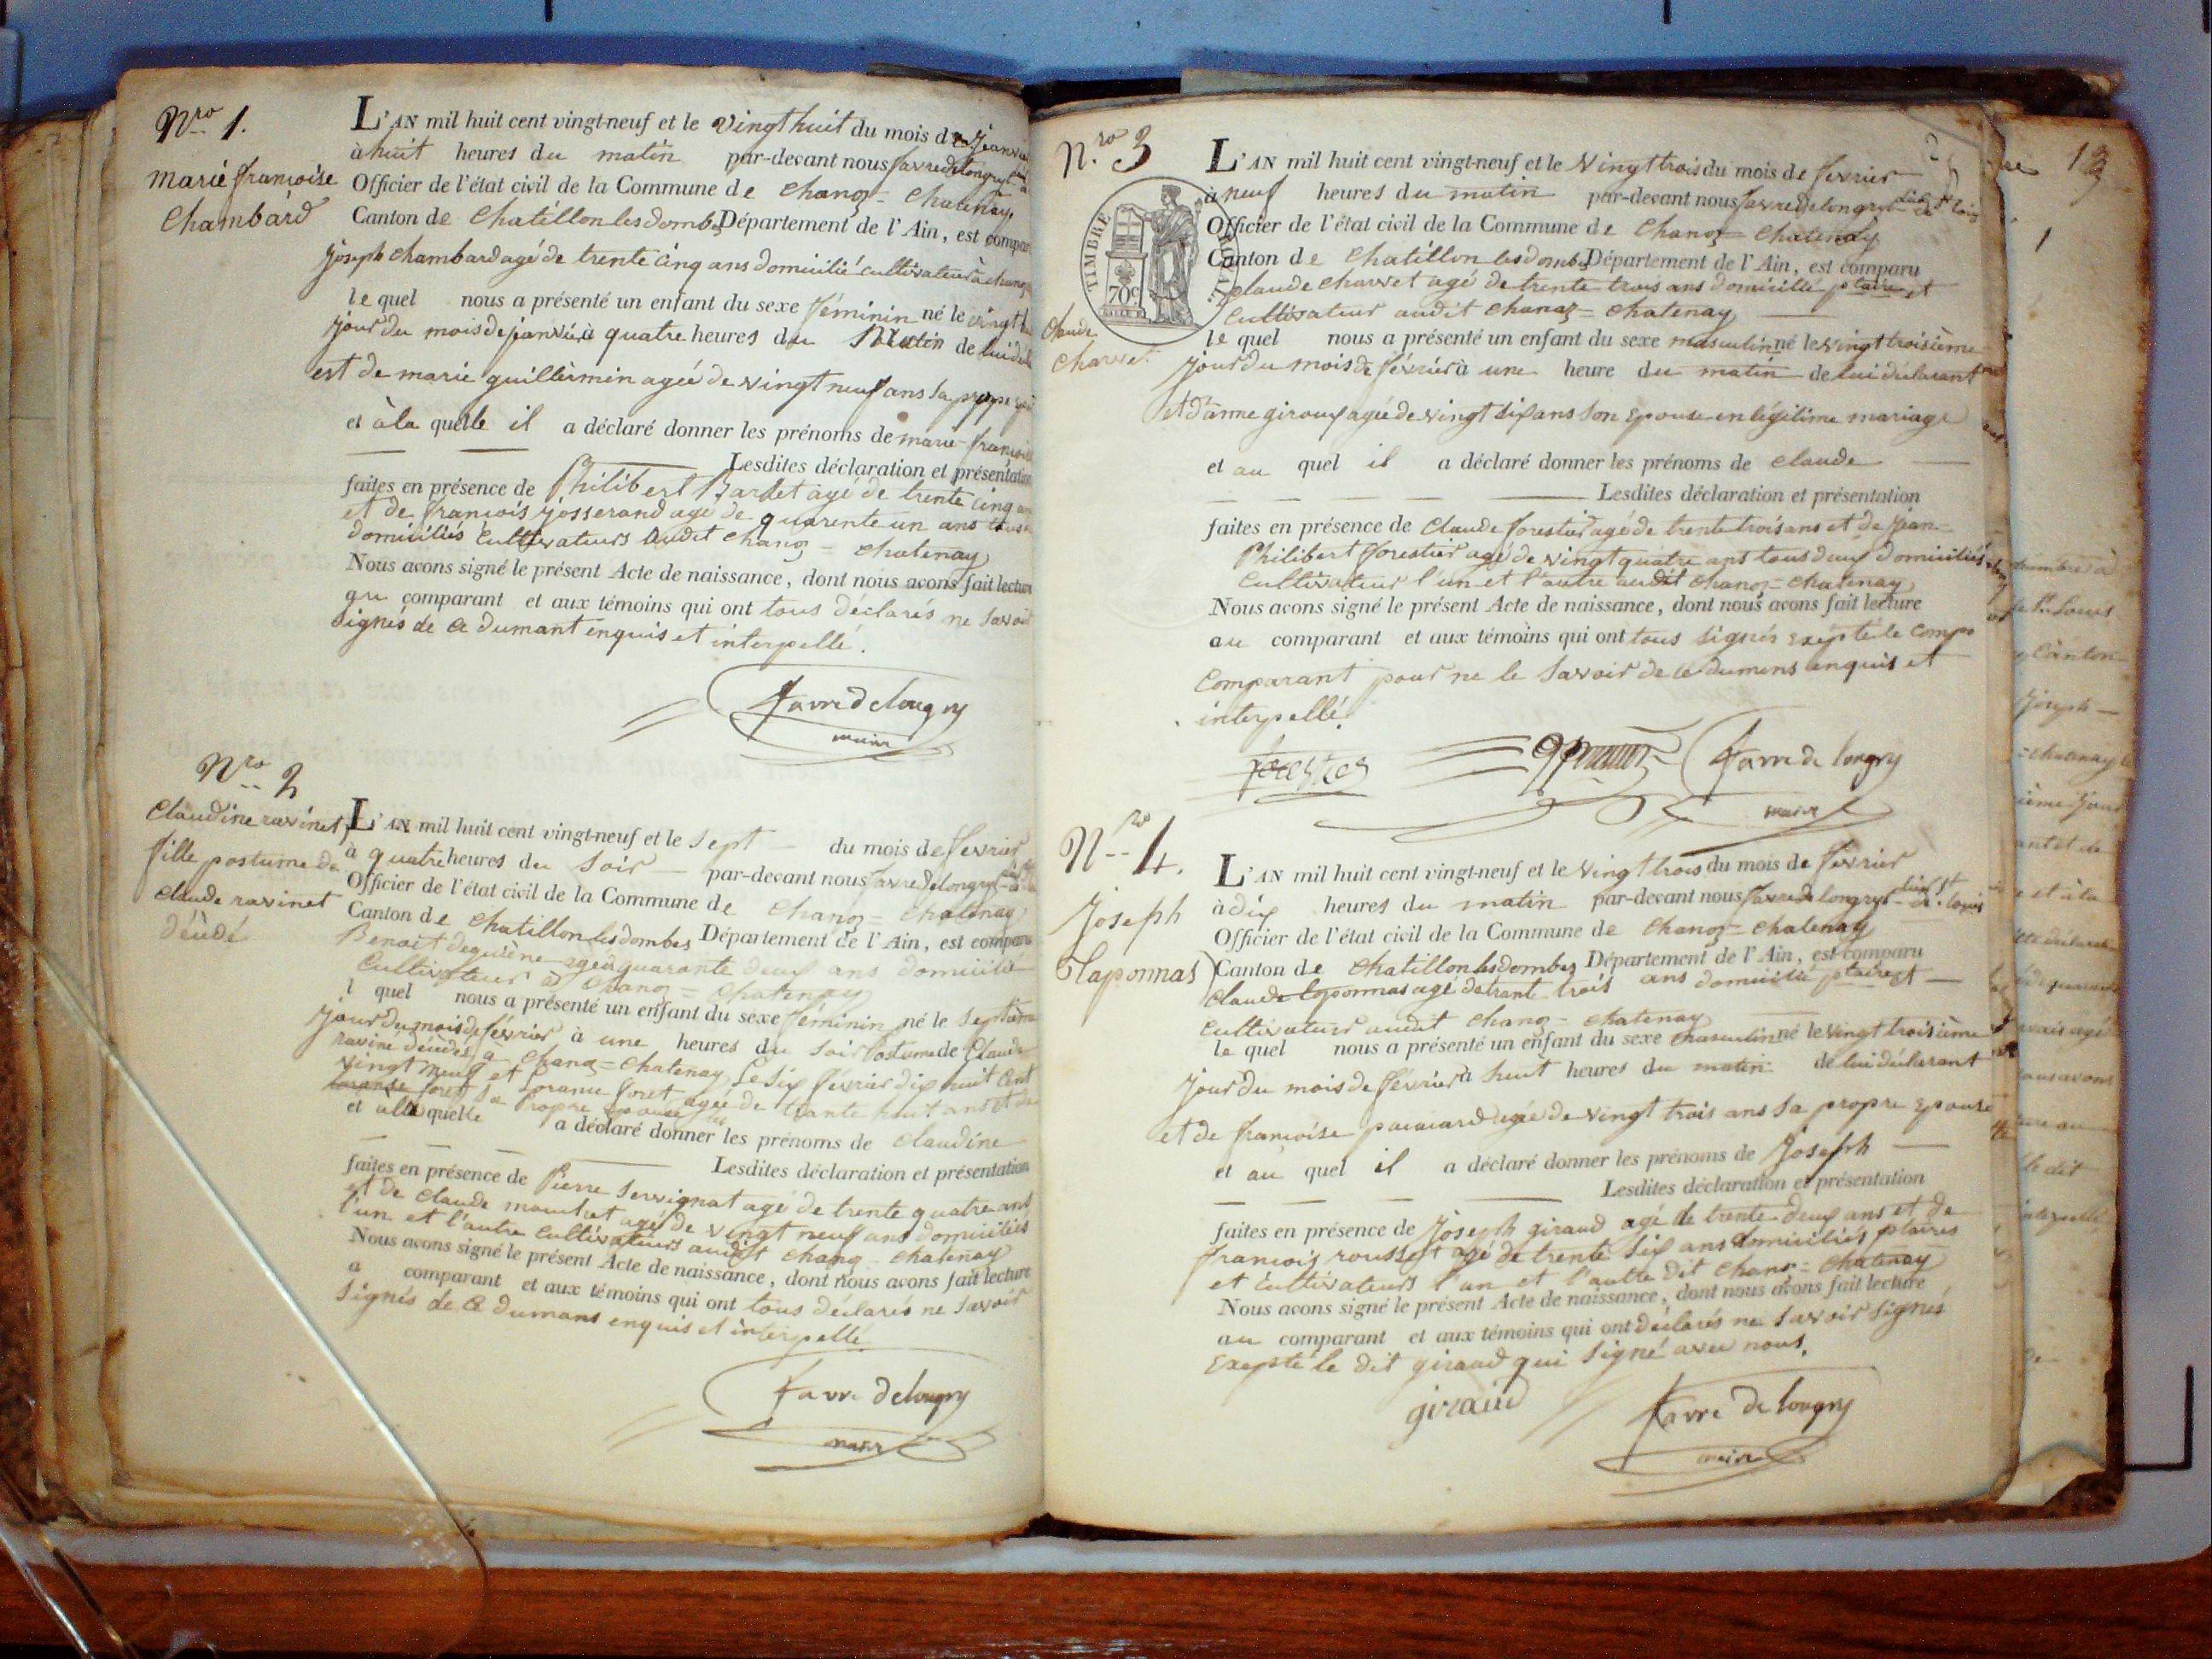 Nro 1.
marie françoise
Chambard
L'AN mil huit cent vingt-neuf et le vingt huit du mois de Janvier
à huit heures du matin par-devant nous favre de longry
Officier de l'état civil de la Commune de Chanoz = Chatenay
Canton de Chatillon les dombes Département de l'Ain, est comparu
joseph Chambard agé de trente cinq ans domicilié cultivateur à chanoz
le quel nous a présenté un enfant du sexe féminin né le vingt
jour du mois de janvier à quatre heures du Matin de lui
est de marie guillermin agée de vingt neuf ans sa propre
et à la quelle il a déclaré donner les prénoms de marie françoise
Lesdites déclaration et présentation
faites en présence de Philibert Bardet agé de trente cinq ans
et de françois josserand agé de quarente un ans tous
domiciliés Cultivateurs Audit Chanoz = chatenay
Nous avons signé le présent Acte de naissance, dont nous avons fait lecture
au comparant et aux témoins qui ont tous déclarés ne savoir
signés de ce dumant enquis et interpellé.
favre de longry
maire
Nro 2
Claudine ravinet
fille postume de
claude ravinet
décédé
L'AN mil huit cent vingt-neuf et le sept du mois de fevrier
à quatre heures du soir par-devant nous favre de longry
Officier de l'état civil de la Commune de Chanoz = Chatenay
Canton de Chatillon les dombes Département de l'Ain, est comparu
Benoit deguène agé quarante deux ans domicilié
Cultivateur à Chanoz = Chatenay
l quel nous a présenté un enfant du sexe féminin né le septième
jour du mois de février à une heures du soir Postume de Claude
ravine décédés à Chanoz = Chatenay Le six février dix huit Cent
vingt neuf et Loranse foret agée de trante huit ans
loranse foret sa propre epouse
et à la quelle a déclaré donner les prénoms de Claudine
Lesdites déclaration et présentation
faites en présence de Pierre servignat agé de trente quatre ans
et de Claude agé de vingt neuf ans domiciliés
l'un et l'autre cultivateurs audit Chanoz = chatenay
Nous avons signé le présent Acte de naissance, dont nous avons fait lecture
a comparant et aux témoins qui ont tous déclarés ne savoir
signés de ce dumans enquis et interpellé
favre de longry
maire
N.ro 3
TIMBRE ROYAL
70c
Claude
Charvet
L'AN mil huit cent vingt-neuf et le Vingt trois du mois de fevrier
à neuf heures du matin par-devant nous favre de longry dit de St Louis
Officier de l'état civil de la Commune de Chanoz = Chatenay
Canton de Chatillon les dombes Département de l'Ain, est comparu
Claude charvet agé de trente trois ans domicilié et
Cultivateur audit Chanoz = Chatenay
le quel nous a présenté un enfant du sexe masculin né le vingt troisième
jour du mois de février à une heure du matin de lui déclarant
et d'anne giroux agée de vingt six ans son Epouse en légitime mariage
et au quel il a déclaré donner les prénoms de Claude
Lesdites déclaration et présentation
faites en présence de Claude forestier agé de trente trois ans et de Jean
Philibert forestier agé de vingt quatre ans tous deux domiciliés
Cultivateur l'un et l'autre audit Chanoz = Chatenay
Nous avons signé le présent Acte de naissance, dont nous avons fait lecture
au comparant et aux témoins qui ont tous signés Exepté le Comp
Comparant pour ne le savoir de ce dumens enquis et
interpellé.
favre de longry
maire
Nro 4.
Joseph
Laponnas
L'AN mil huit cent vingt-neuf et le Vingt trois du mois de février
à dix heures du matin par-devant nous favre de longry dit de St Louis
Officier de l'état civil de la Commune de Chanoz = Chatenay
Canton de Chatillon les dombes Département de l'Ain, est comparu
Claude laponnas agé de trante trois ans domicilié
Cultivateur audit Chanoz = Chatenay
le quel nous a présenté un enfant du sexe masculin né le vingt troisième
jour du mois de février à huit heures du matin de lui déclarant
et de françoise agée de vingt trois ans sa propre Epouse
et au quel il a déclaré donner les prénoms de Joseph
Lesdites déclaration et présentation
faites en présence de Joseph giraud agé de trente deux ans et de
francois rousset agé de trente six ans domiciliés
et Cultivateurs l'un et l'autre dit Chanoz = Chatenay
Nous avons signé le présent Acte de naissance, dont nous avons fait lecture
au comparant et aux témoins qui ont déclarés ne savoir signés
Exepté le dit giraud qui signé avec nous.
giraud
favre de longry
maire